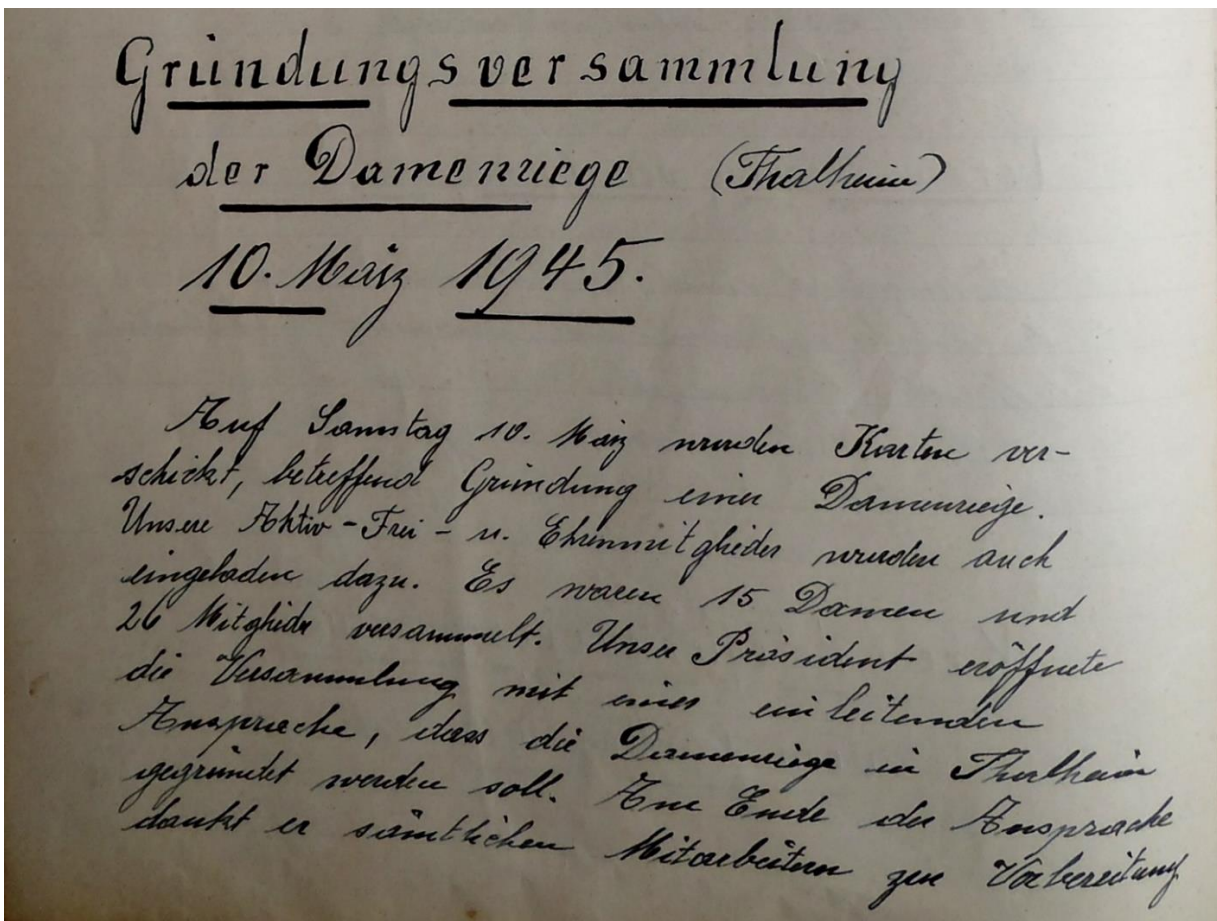 Gründungsversammlung
der Damenriege (Thalheim)
10. März 1945.
Auf Samstag 10. März wurden Karten ver-
schickt, betreffend Gründung einer Damenriege.
Unsere Aktiv-Frei- u. Ehrenmitglieder wurden auch
eingeladen dazu. Es waren 15 Damen und
26 Mitglieder versammelt. Unser Präsident eröffnete
die Versammlung mit einer einleitenden
Ansprache, dass die Damenriege in Thalheim
gegründet werden soll. Am Ende der Ansprache
dankt er sämtlichen Mitarbeitern zur Vorbereitung